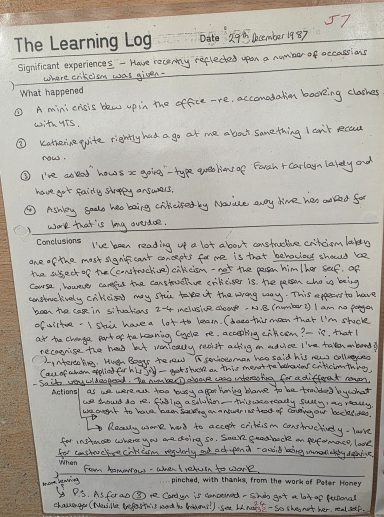 57
The Learning Log
Date 29th December 1987
Significant experiences – Have recently reflected upon a number of occassions
where criticism was given –
What happened
① A mini crisis blew up in the office – re. accomodation booking clashes
with YTS.
② Katherine quite rightly had a go at me about something I can't recall
now.
③ I've asked "hows x going"- type questions of Farah + Carolyn lately and
have got fairly stroppy answers.
④ Ashley feels hes being criticised by Neville every time hes asked for
work that is long overdue.
Conclusions I've been reading up a lot about constructive criticism lately
one of the most significant concepts for me is that behaviour should be
the subject of the (constructive) criticism – not the person him/her self. Of
course, however careful the constructive criticiser is the person who is being
constructively criticised may still take it the wrong way. This appears to have
been the case in situations 2-4 inclusive above – N.B. (number 1) I am no paragon
of virtue – I still have a lot to learn. (does this mean that I'm stuck
at the change part of the Learning Cycle re. accepting criticism? – ie. that I
recognise the need but
Interesting. Hugh Beggs the new has said his new colleagues
So its very widespread. The number 1 above was interesting for a different reason,
Actions as we were all too busy apportioning blame to be troubled by what
we should do re. finding a solution – this was really silly, as really
we ought to have been seeking an answer instead of covering our backsides.
Really work hard to accept criticism constructively – look
for instances where you are doing so. Seek feedback on performance, look
for constructive criticism regularly – avoid being immediately defensive.
When From tomorrow – when I return to work
more learning pinched, with thanks, from the work of Peter Honey
P.S. As far as ③ re Carolyn is concerned – she's got a lot of personal
challenges So she's not her real self.